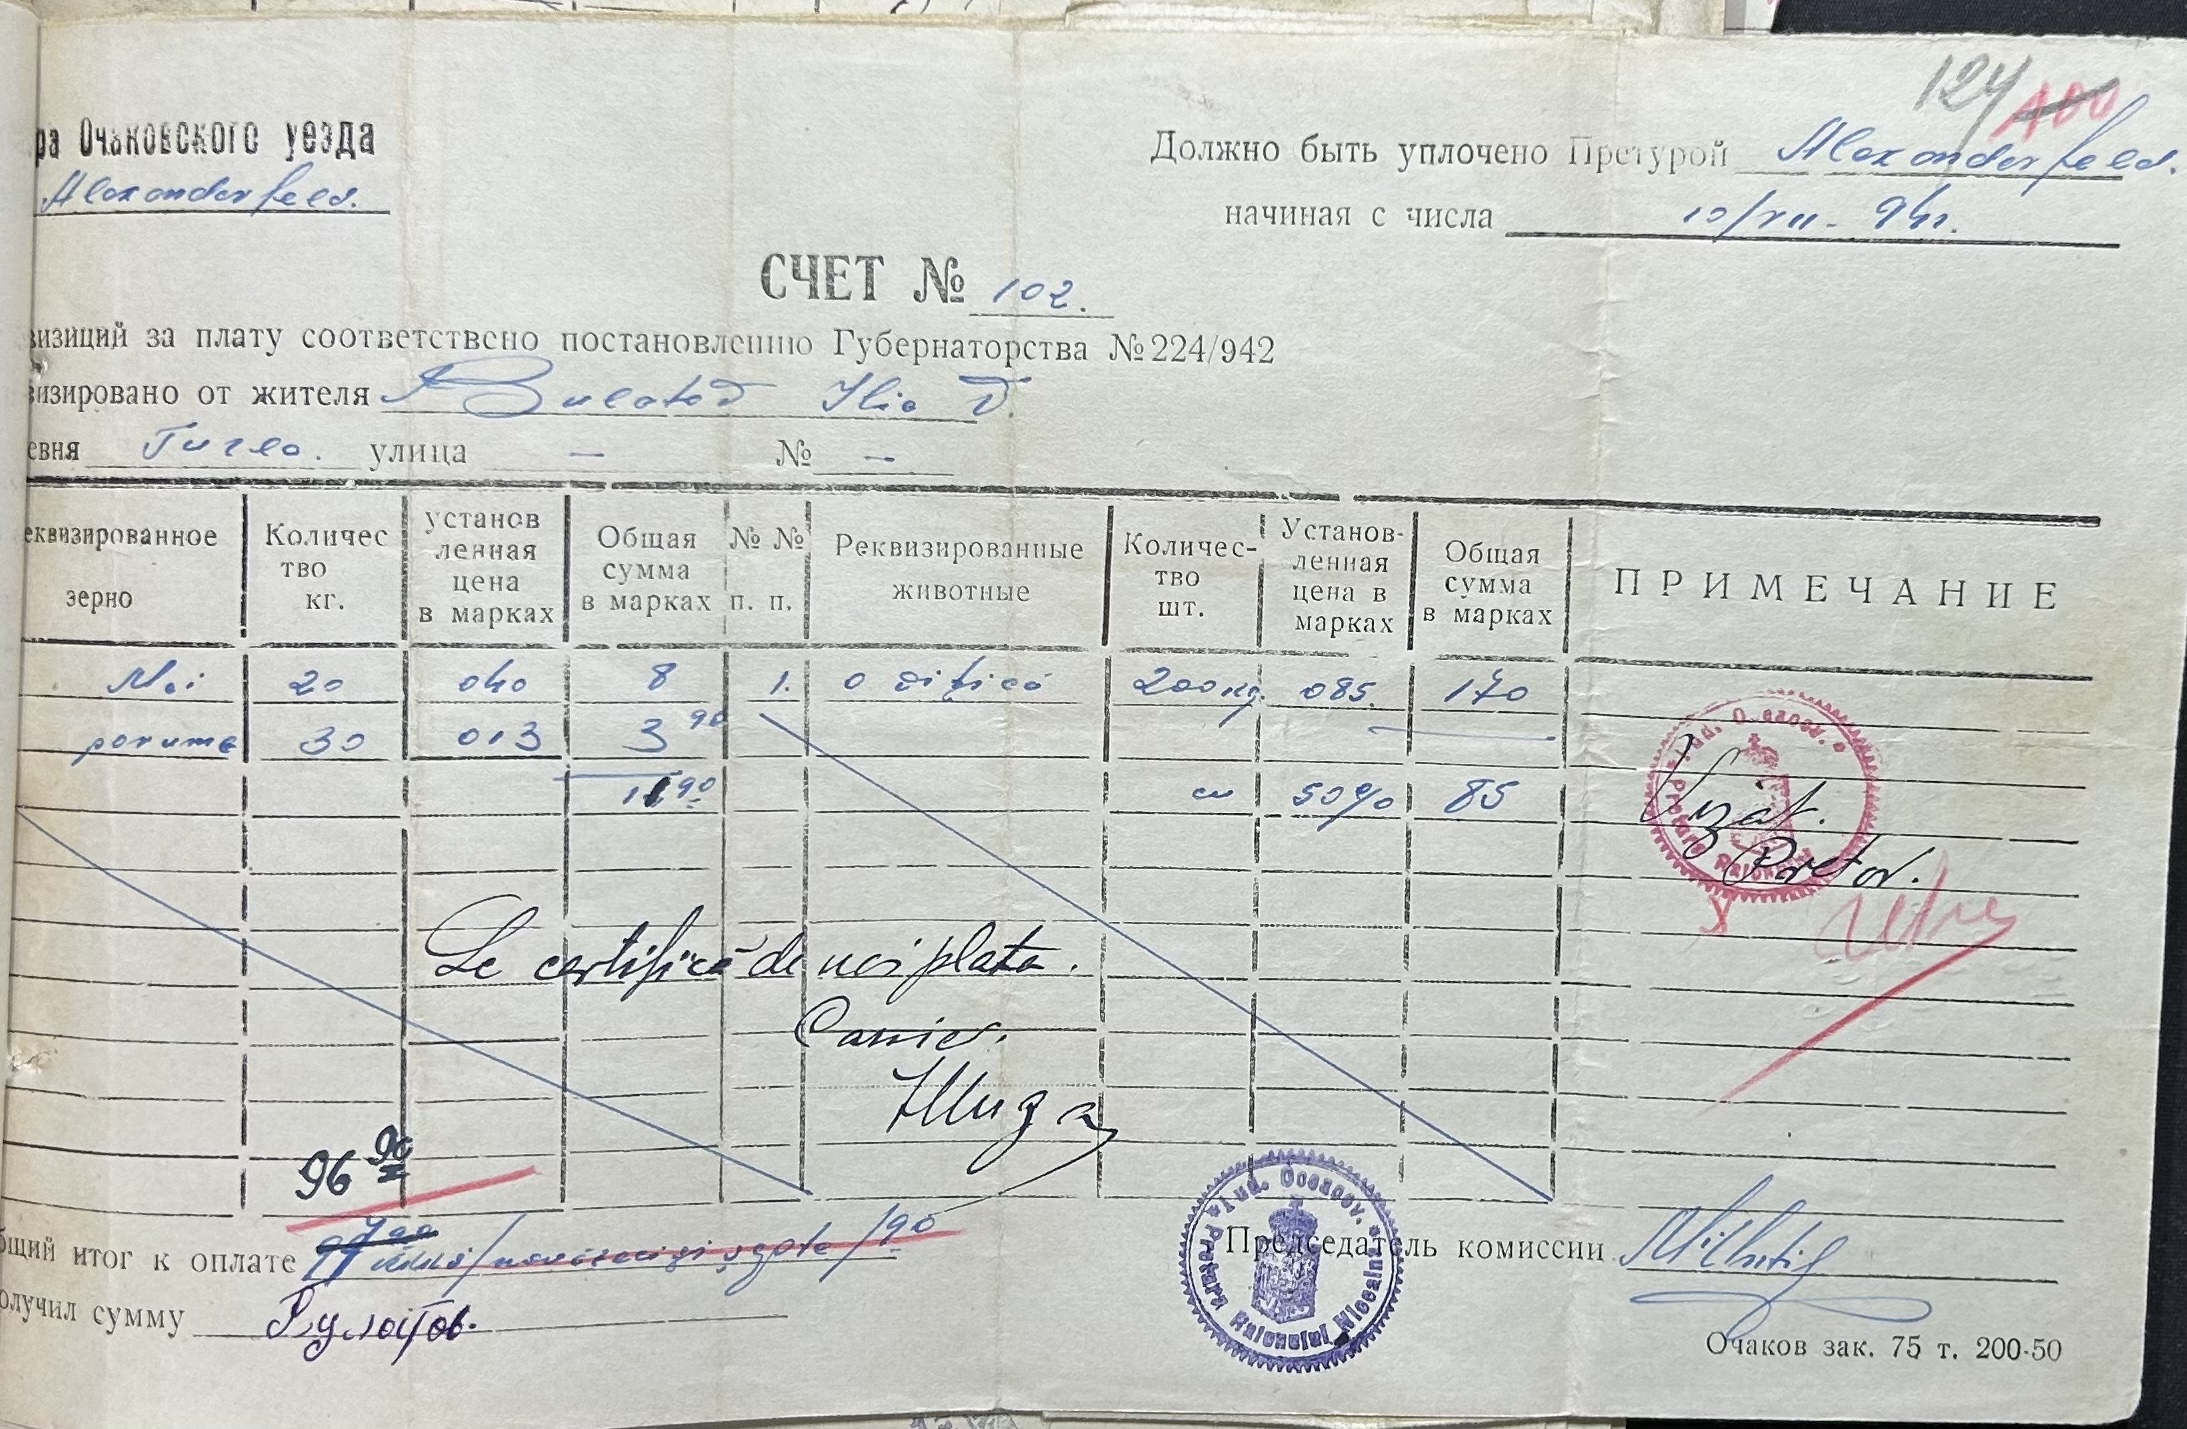 124 100
ра Очаковского уезда
Alexanderfeld.
Должно быть уплочено Претурой Alexanderfeld.
начиная с числа 10/XII - 942.
СЧЕТ № 102.
визиций за плату соответствено постановлению Губернаторства № 224/942
визировано от жителя Bulatov Ilia T.
евня улица — № —
еквизированное зерно
Количес тво кг.
установ ленная цена в марках
Общая сумма в марках
№ № п. п.
Реквизированные животные
Количес- тво шт.
Установ- ленная цена в марках
Общая сумма в марках
ПРИМЕЧАНИЕ
20 040 8 1. o vițică 200 кg. 085 170
30 013 3 90
11 90 cu 50% 85
Vizat.
Pretor.
Se certifică de noi plata.
Casier.
96 90
бщий итог к оплате /90
олучил сумму Булатов.
Председатель комиссии
Pretura Raionului Jud. Oceacov.
Очаков зак. 75 т. 200-50